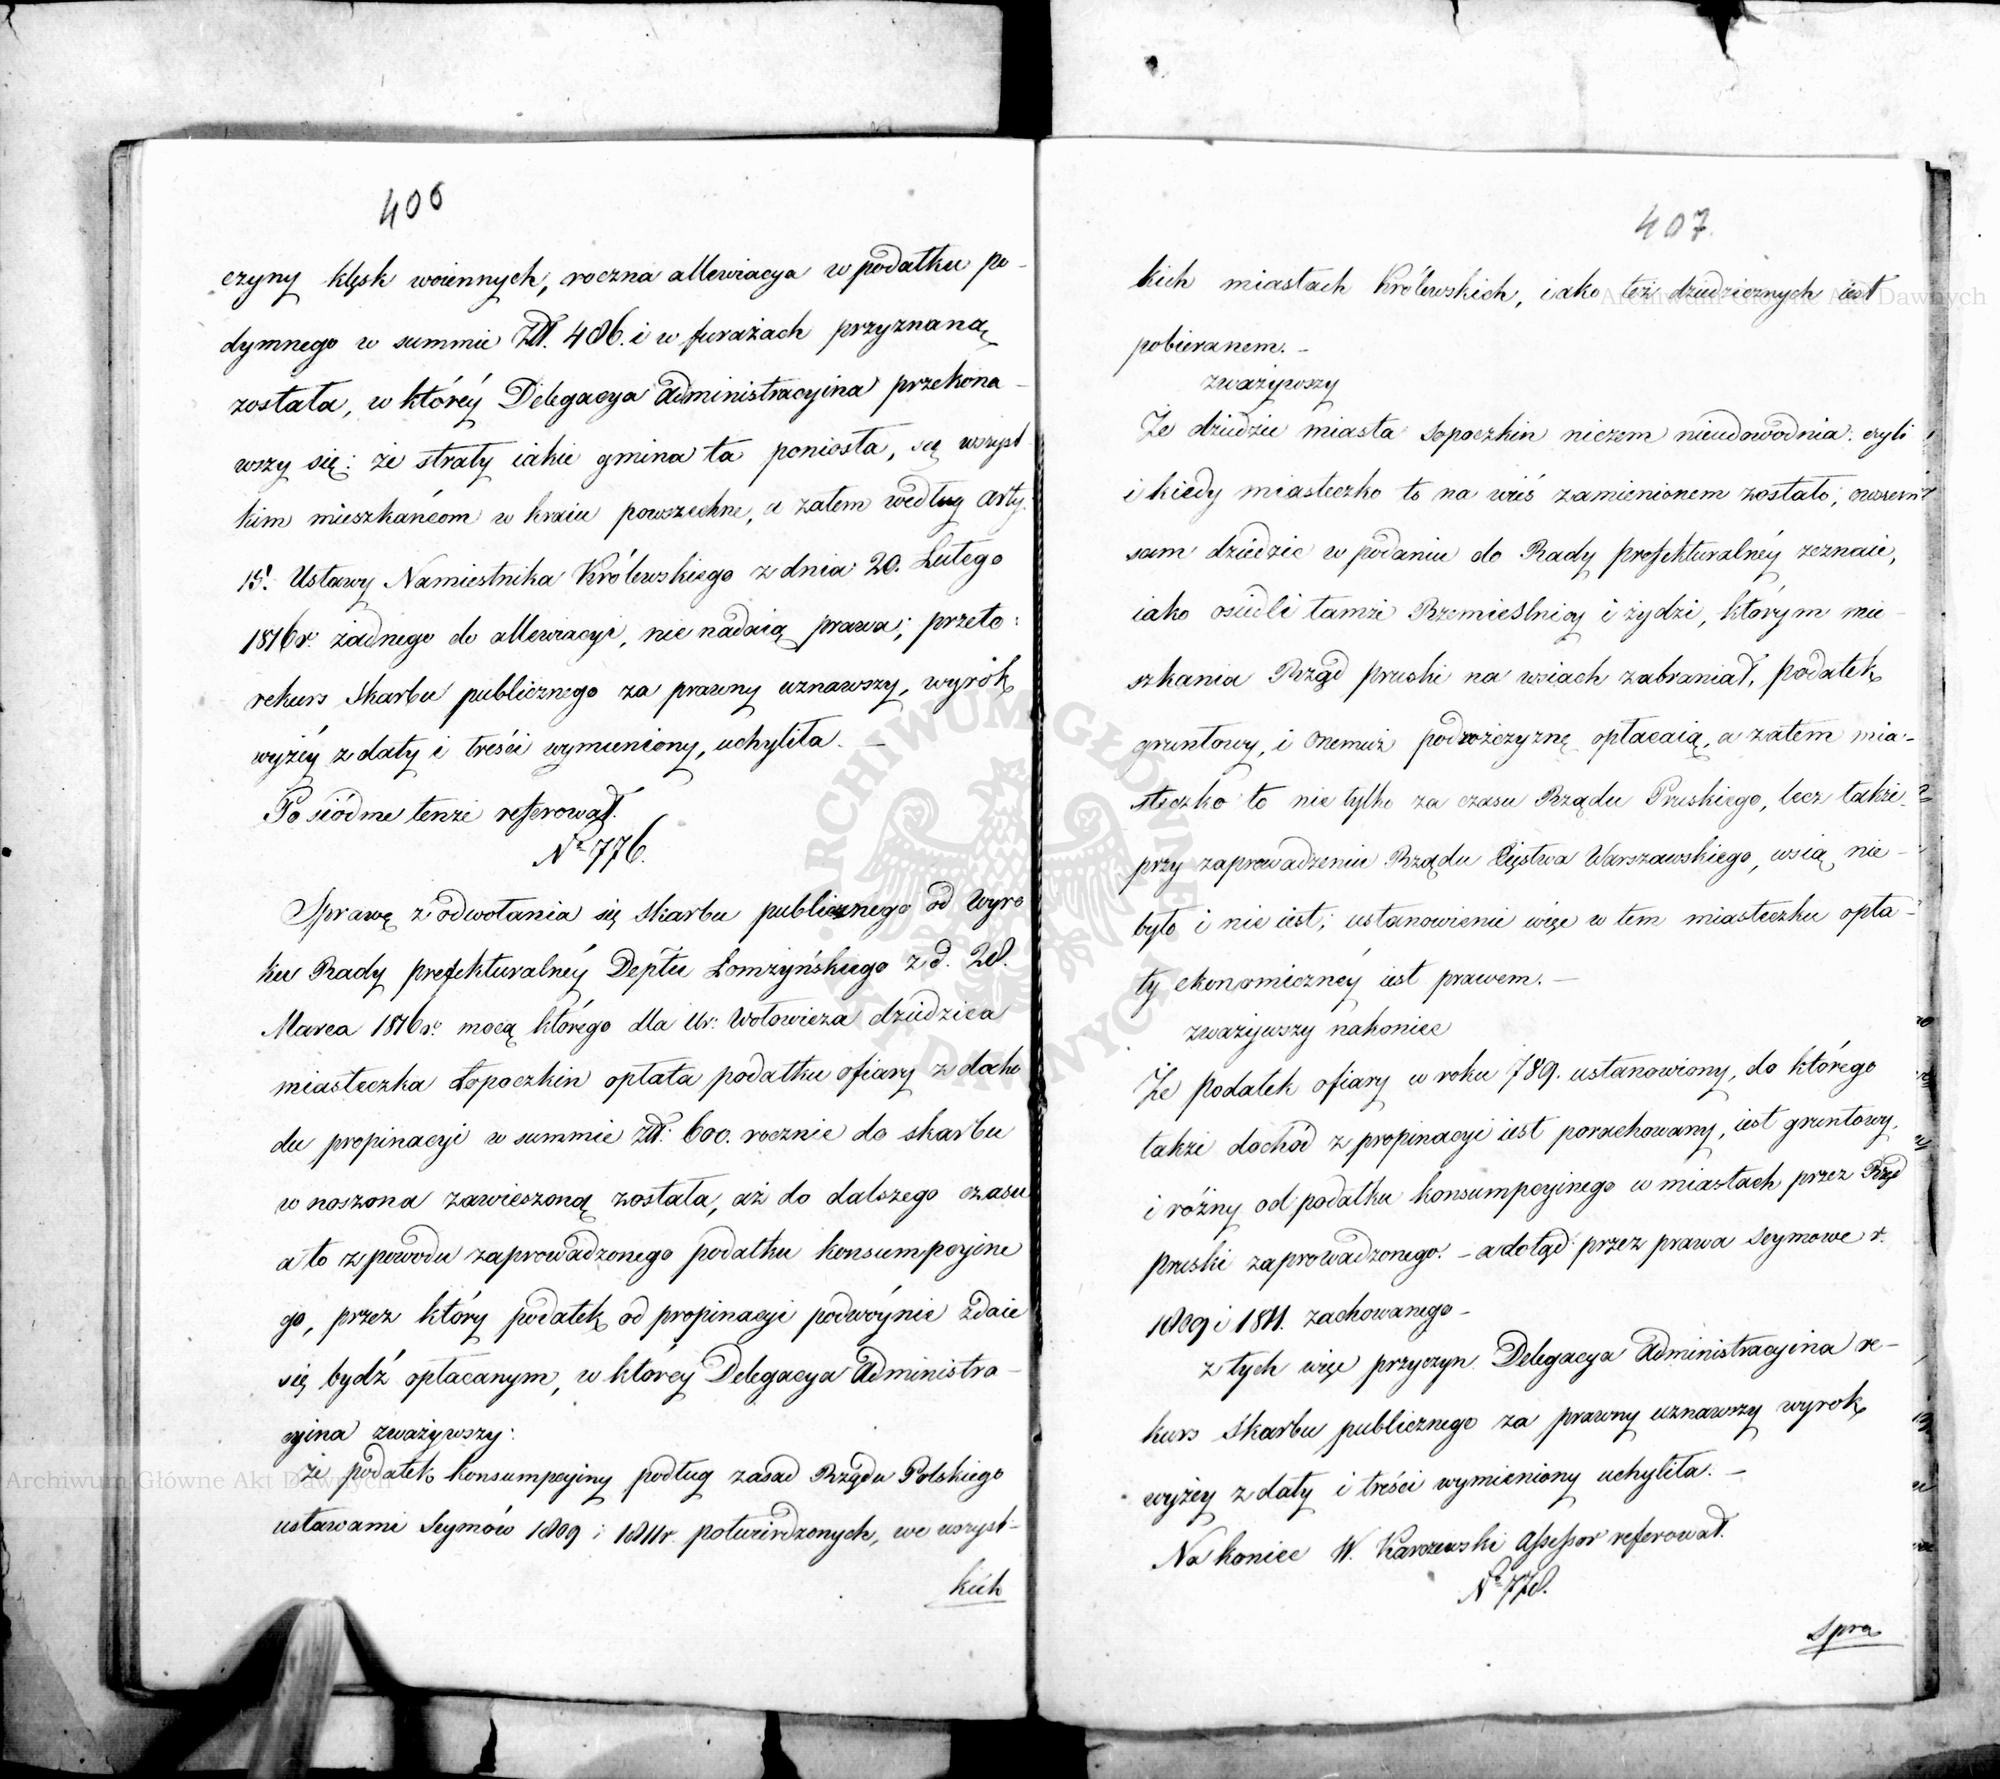 406
czyny klęsk woiennych, roczna allewiacya w podatku po-
dymnego w summie Złł. 486. i w furażach przyznaną
została, w któréy Delegacya Administracyina przekona-
wszy się: że straty iakie gmina ta poniosła, są wszyst-
kim mieszkańcom w kraiu powszechne, a zatem według Arty.
15. Ustawy Namiestnika Królewskiego z dnia 20. Lutego
1816 r. żadnego do allewiacyi, nie nadaią prawa; przeto:
rekurs Skarbu publicznego za prawny uznawszy, wyrok
wyżéy z daty i treści wymieniony, uchyliła. —
Po siódme tenże referował.
Nr 776.
Sprawę z odwołania się Skarbu publicznego od Wyro
ku Rady prefekturalnéy Deptu Łomżyńskiego z d. 28.
Marca 1816 r. mocą którego dla Ur: Wołowicza dziedzica
miasteczka Łopaczkin opłata podatku ofiary z docho
du propinacyi w summie złł: 600. rocznie do skarbu
wnoszona zawieszoną została, aż do dalszego czasu
a to z powodu zaprowadzonego podatku konsumpcyine
go, przez który podatek od propinacyi podwóynie zdaie
się bydź opłacanym, w którey Delegacya Administra-
cyina zważywszy:
że podatek konsumpcyiny podług zasad Rządu Polskiego
ustawami Seymów 1809 i 1811 r. potwierdzonych, we wszyst-
kich
407.
kich miastach Królewskich, iako też dziedzicznych iest
pobieranem. —
zważywszy
Że dziedzic miasta Sopoczkin niczem nieudowodnia: czyli
i kiedy miasteczko to na wieś zamienionem zostało; owszem
sam dziedzic w podaniu do Rady prefekturalnéy zeznaie,
iako osiedli tamże Rzemieślnicy i żydzi, którym mie-
szkania Rząd pruski na wsiach zabraniał, podatek
gruntowy, i onemuż podrożczyznę opłacaią, a zatem mia-
steczko to nie tylko za czasu Rządu Pruskiego, lecz także
przy zaprowadzeniu Rządu Xięstwa Warszawskiego, wsią nie-
było i nie iest; ustanowienie więc w tem miasteczku opła-
ty ekonomicznéy iest prawem. —
zważywszy nakoniec
Że podatek ofiary w roku 789. ustanowiony, do którego
także dochód z propinacyi iest porachowany, iest gruntowy,
i różny od podatku konsumpcyinego w miastach przez Rząd
pruski zaprowadzonego. — a dotąd przez prawa Seymowe r.
1809 i 1811. zachowanego —
z tych więc przyczyn Delegacya Administracyina re-
kurs Skarbu publicznego za prawny uznawszy wyrok
wyżey z daty i treści wymieniony uchyliła. —
Na koniec W. Karczewski Assessor referował.
Nr 778.
Spra
Archiwum Główne Akt Dawnych
Archiwum Główne Akt Dawnych
ARCHIWUM GŁÓWNE AKT DAWNYCH